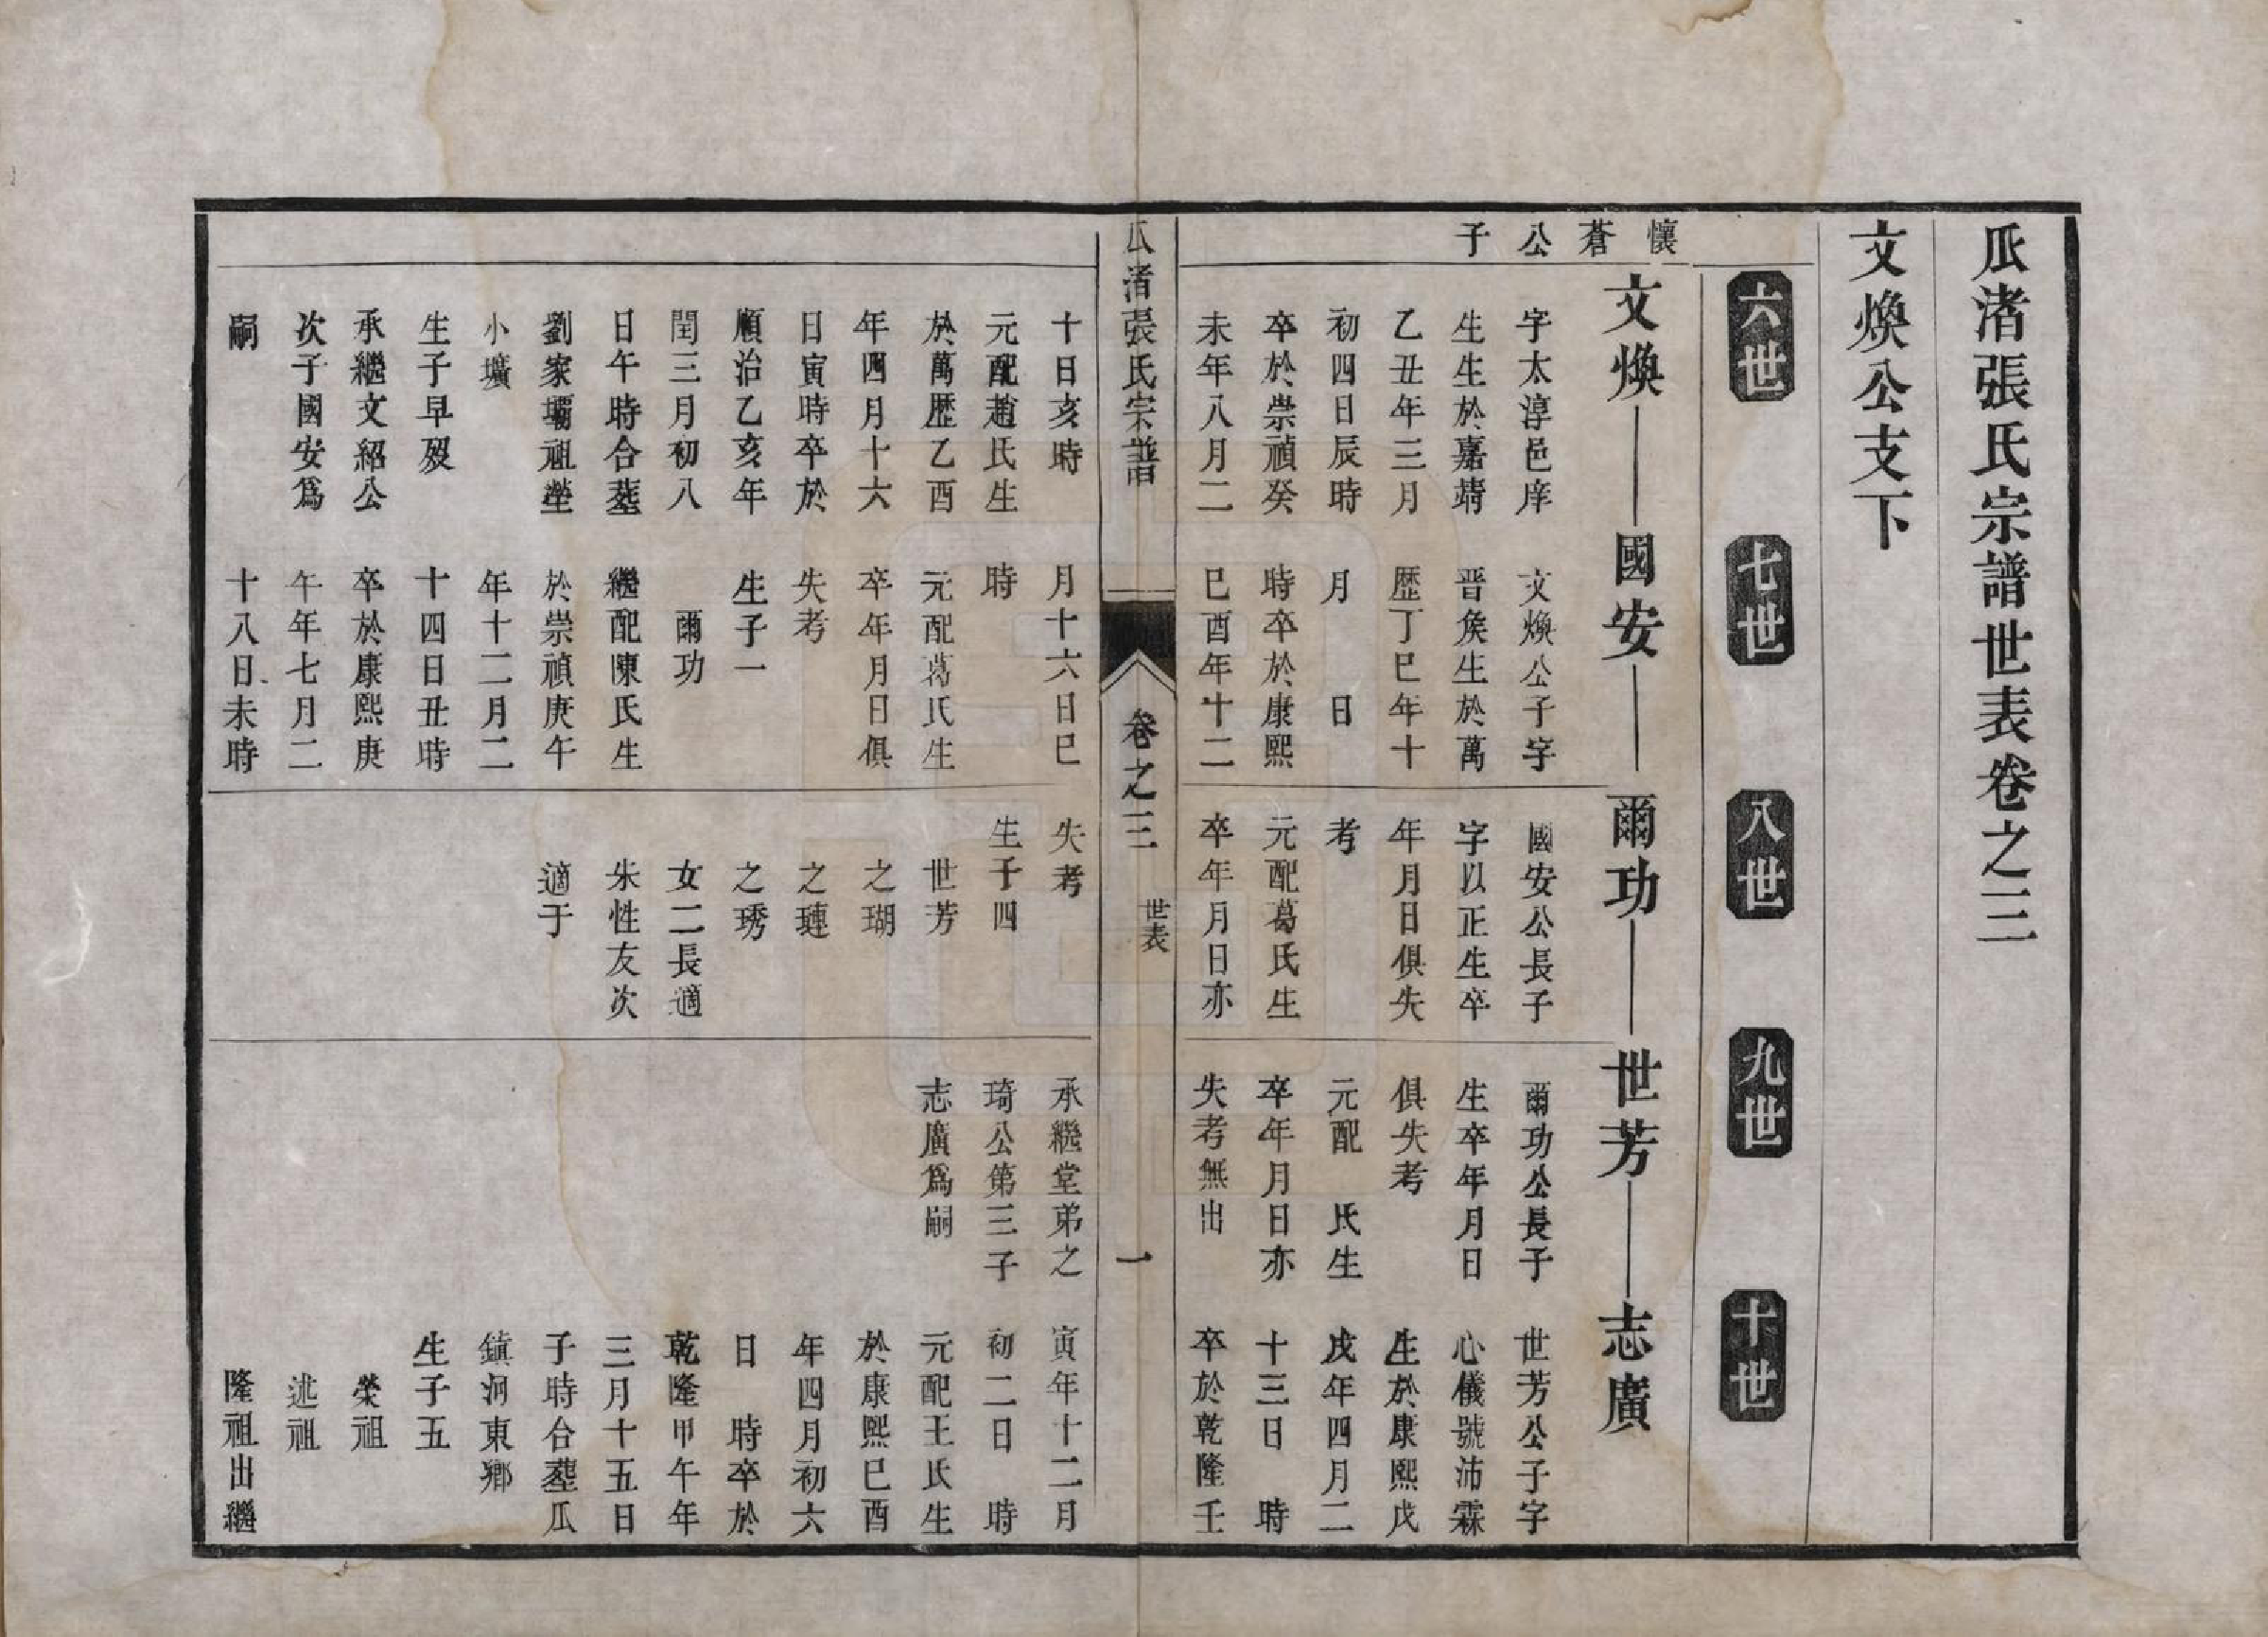 瓜渚張氏宗譜世表卷之三
文煥公支下
六世
七世
八世
九世
十世
懷蒼公子
文煥
國安
爾功
世芳
志廣
字太淳邑庠
生生於嘉靖
乙丑年三月
初四日辰時
卒於崇禎癸
未年八月二
十日亥時
元配趙氏生
於萬歷乙酉
年四月十六
日寅時卒於
順治乙亥年
閏三月初八
日午時合墓
劉家壩祖塋
小壙
生子早歿
承繼文紹公
次子國安為
嗣
文煥公子字
晋矦生於萬
歷丁巳年十
月　日
時卒於康熙
已酉年十二
月十六日巳
時
元配葛氏生
卒年月日俱
失考
生子一
爾功
繼配陳氏生
於崇禎庚午
年十二月二
十四日丑時
卒於康熙庚
午年七月二
十八日未時
國安公長子
字以正生卒
年月日俱失
考
元配葛氏生
卒年月日亦
失考
生子四
世芳
之瑚
之璉
之琇
女二長適
朱性友次
適于
爾功公長子
生卒年月日
俱失考
元配　氏生
卒年月日亦
失考無出
承繼堂弟之
琦公第三子
志廣爲嗣
世芳公子字
心儀號沛霖
生於康熙戊
戌年四月二
十三日　時
卒於乾隆壬
寅年十二月
初二日　時
元配王氏生
於康熙已酉
年四月初六
日　時卒於
乾隆甲午年
三月十五日
子時合墓瓜
鎮河東鄉
生子五
榮祖
述祖
隆祖出繼
瓜渚張氏宗譜
卷之三
世表
一